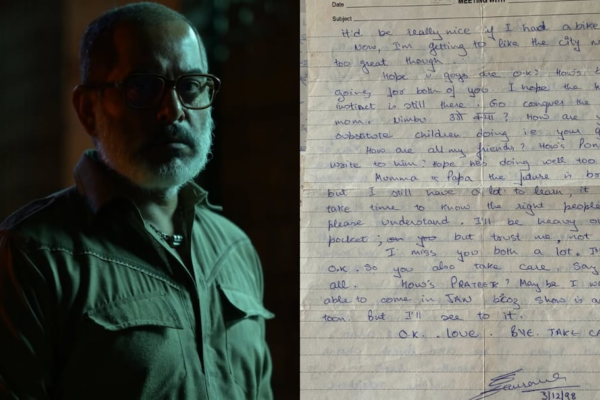 Date
MEETING WITH
Subject
It'd be really nice if I had a bike
Now, I'm getting to like the city
too great though.
Hope u guys are O.K? How's
going, for both of you I hope the
instinct is still there. Go conquer the
mom. Nimbu? How are
substitute children doing i.e your
How are all my friends? How's
write to him? Hope he's doing well too.
Mumma & Papa the future is
but I still have a lot to learn, it
take time to know the right people
please understand. I'll be heavy on
pocket, but trust me, not
I miss you both a lot. I'm
O.K. So you also take care. Say
all. How's PRATEEK? May be I
able to come in JAN bcoz show is
toon. But I'll see to it.
O.K. . LOVE. BYE. TAKE
3/12/98